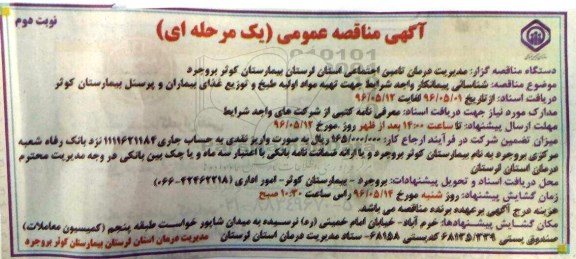 نوبت دوم
آگهی مناقصه عمومی (یک مرحله ای)
دستگاه مناقصه گزار: مدیریت درمان تامین اجتماعی استان لرستان بیمارستان کوثر بروجرد
موضوع مناقصه: شناسائی پیمانکار واجد شرایط جهت تهیه مواد اولیه طبخ و توزیع غذای بیماران و پرسنل بیمارستان کوثر
دریافت اسناد: از تاریخ ۹۶/۰۵/۰۱ لغایت ۹۶/۰۵/۱۲
مدارک مورد نیاز جهت دریافت اسناد: معرفی نامه کتبی از شرکت های واجد شرایط
مهلت ارسال پیشنهاد: تا ساعت ۱۴:۰۰ بعد از ظهر روز .مورخ ۹۶/۰۵/۱۲
میزان تضمین شرکت در فرآیند ارجاع کار: ۱۶۵/۰۰۰/۰۰۰ ریال به صورت واریز نقدی به حساب جاری ۱۱۱۱۶۲۱۱۸۴ نزد بانک رفاه شعبه
مرکزی بروجرد به نام بیمارستان کوثر بروجرد و یا ارائه ضمانت نامه بانکی با اعتبار سه ماه و یا چک بین بانکی در وجه مدیریت محترم
درمان استان لرستان
محل دریافت اسناد و تحویل پیشنهادات: بروجرد - بیمارستان کوثر- امور اداری (۴۲۴۶۲۲۱۸-۰۶۶)
زمان گشایش پیشنهاد: روز شنبه مورخ ۹۶/۰۵/۱۴ راس ساعت ۱۰:۳۰ صبح
هزینه درج آگهی برعهده برنده مناقصه می باشد.
مکان گشایش پیشنهادها: خرم آباد- خیابان امام خمینی (ره) نرسیده به میدان شاپور خواست طبقه پنجم (کمیسیون معاملات)
صندوق پستی ۶۸۱۳۵/۳۳۹ کدپستی ۶۸۱۵۸- ستاد مدیریت درمان استان لرستان
مدیریت درمان استان لرستان بیمارستان کوثر بروجرد